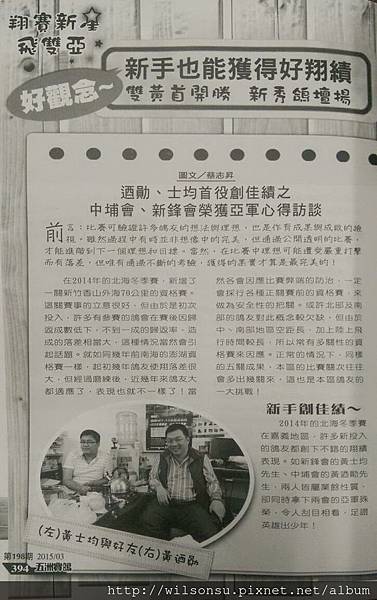 翔賽新星
飛雙亞
好觀念~
新手也能獲得好翔績
雙黃首開勝 新秀鴿壇揚
圖文／蔡志昇
迺勛、士均首役創佳績之
中埔會、新鋒會榮獲亞軍心得訪談
前言：比賽可驗證許多鴿友的想法與理想，也是作育成果與成敗的檢
視。雖然過程中有時並非想像中的完美，但通過公開透明的比賽，
才能進階到下一個理想和目標。當然，在比賽中理想可能遭受嚴重打擊
而有落差，但唯有通過不斷的考驗，獲得的果實才算是最完美的！
在2014年的北海冬季賽，新增了
一關新竹香山外海70公里的資格賽。
這關賽事的立意很好，但由於是初次
投入，許多有參賽的鴿會在賽後因歸
返成數低下，不到一成的歸返率，造
成的落差相當大，這種情況當然會引
起話題。就如同幾年前南海的澎湖資
格賽一樣，起初幾年鴿友使用落差很
大，但經過磨練後，近幾年來鴿友大
都適應了，表現也就不一樣了！當
然各會因應比賽弊端的防治，一定
會採行各種正關賽前的資格賽，來
做為安全性的把關。或許北部及南
部的鴿友對此概念較欠缺，但由於
中、南部地區空距長，加上陸上飛
行時間較長，所以常有多關性的資
格賽來因應。正常的情況下，同樣
的五關成果，本區的比賽關次往往
會多出幾關來，這也是本區鴿友的
一大挑戰！
新手創佳績~
2014年的北海冬季賽
在嘉義地區，許多新投入
的鴿友都創下不錯的翔績
表現。如新鋒會的黃士均
先生、中埔會的黃迺勛先
生，兩人皆屬業餘性質，
卻同時拿下兩會的亞軍殊
榮，令人刮目相看，足證
英雄出少年！
(左)黃士均與好友(右)黃迺勛
第198期 2015/03
394 五洲賽鴿
http://wilsonsu.pixnet.net/album